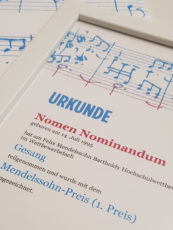 URKUNDE
Nomen Nominandum
geboren am 14. Juli 1995
hat am Felix Mendelssohn Bartholdy Hochschulwettbe
im Wettbewerbsfach
Gesang
teilgenommen und wurde mit dem
Mendelssohn-Preis (1. Preis)
ausgezeichnet.